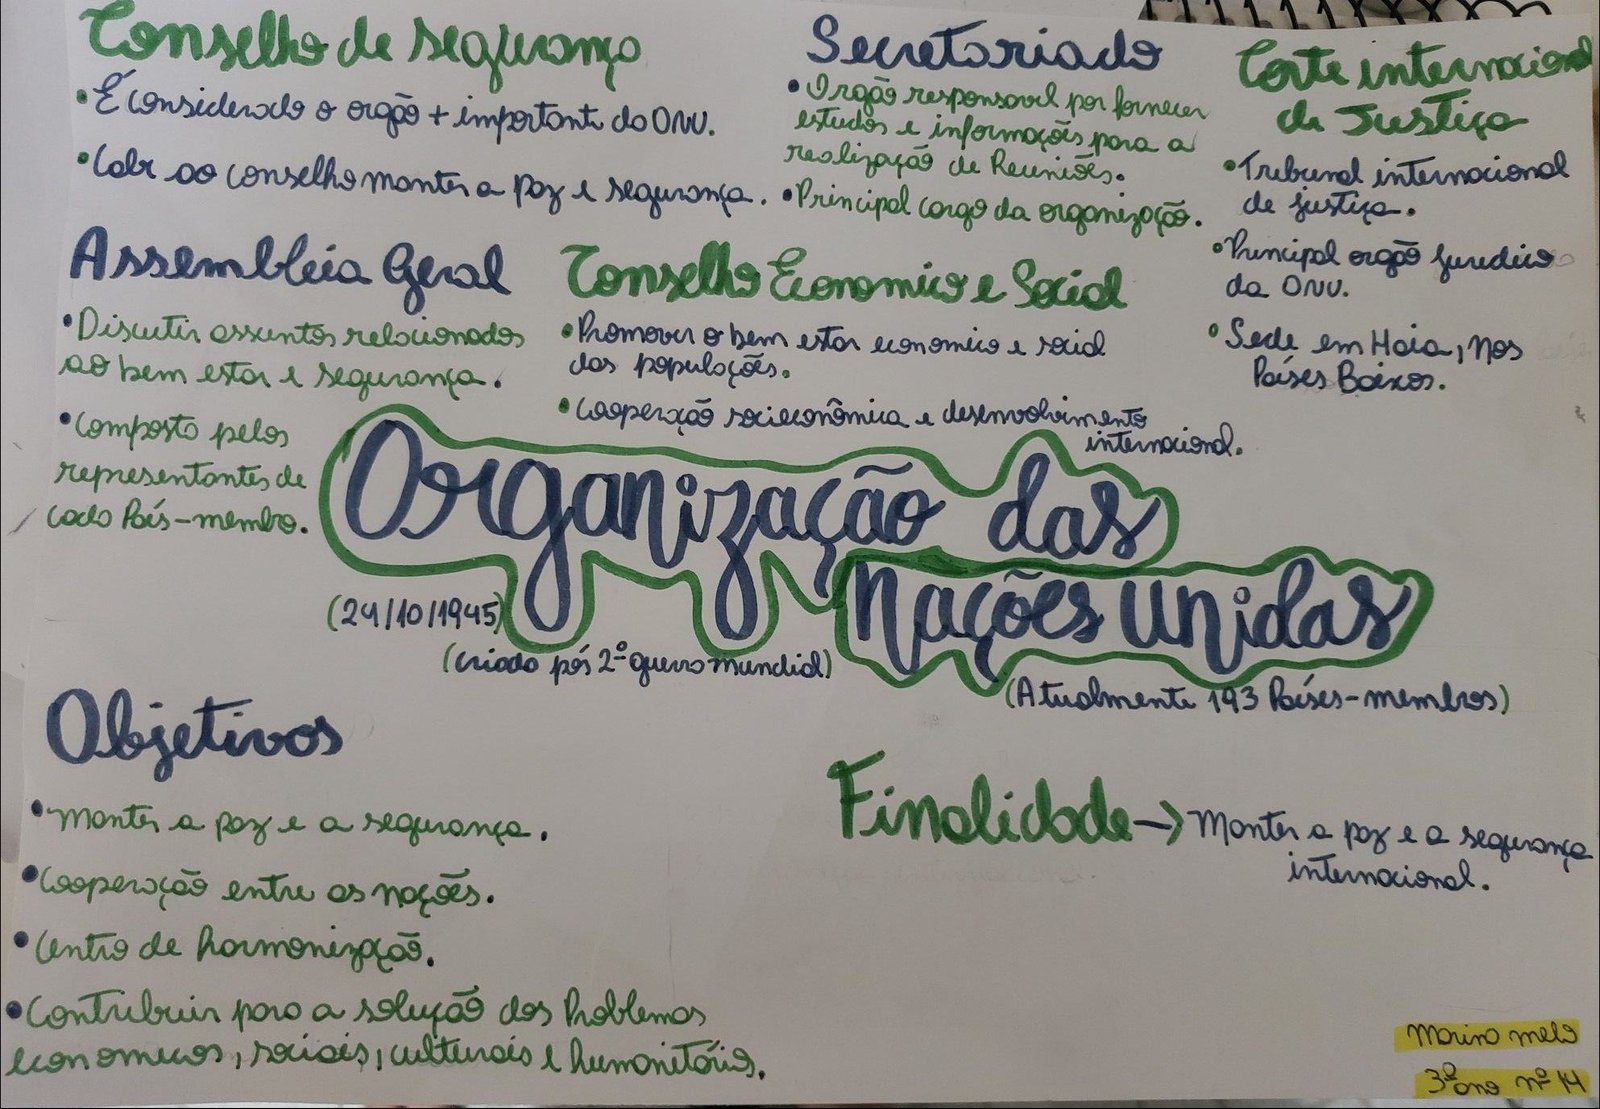 Conselho de segurança
• É considerado o orgão + importante da ONU.
• Cabe ao conselho manter a paz e segurança.
Secretariado
• Orgão responsavel por fornecer
estudos e informações para a
realização de Reuniões.
• Principal cargo da organização.
Corte internacional
de Justiça
• Tribunal internacional
de justiça.
• Principal orgão juredico
da ONU.
• Sede em Haia, nos
Países Baixos.
Assembleia Geral
• Discutir assuntos relacionados
ao bem estar e segurança.
• Composto pelos
representantes de
cada País-membro.
Conselho Economico e Social
• Promover o bem estar economico e social
das populações.
• Cooperação socieconômica e desenvolvimento
internacional.
Organização das
Nações Unidas
(24/10/1945)
(criado pós 2ª guerra mundial)
(Atualmente 193 Países-membros)
Objetivos
• Manter a paz e a segurança.
• Cooperação entre as nações.
• Centro de harmonização.
• Contribuir para a solução dos Problemas
economicos, sociais, culturais e humanitários.
Finalidade → Manter a paz e a segurança
internacional.
Marina melo
3º ano nº 14